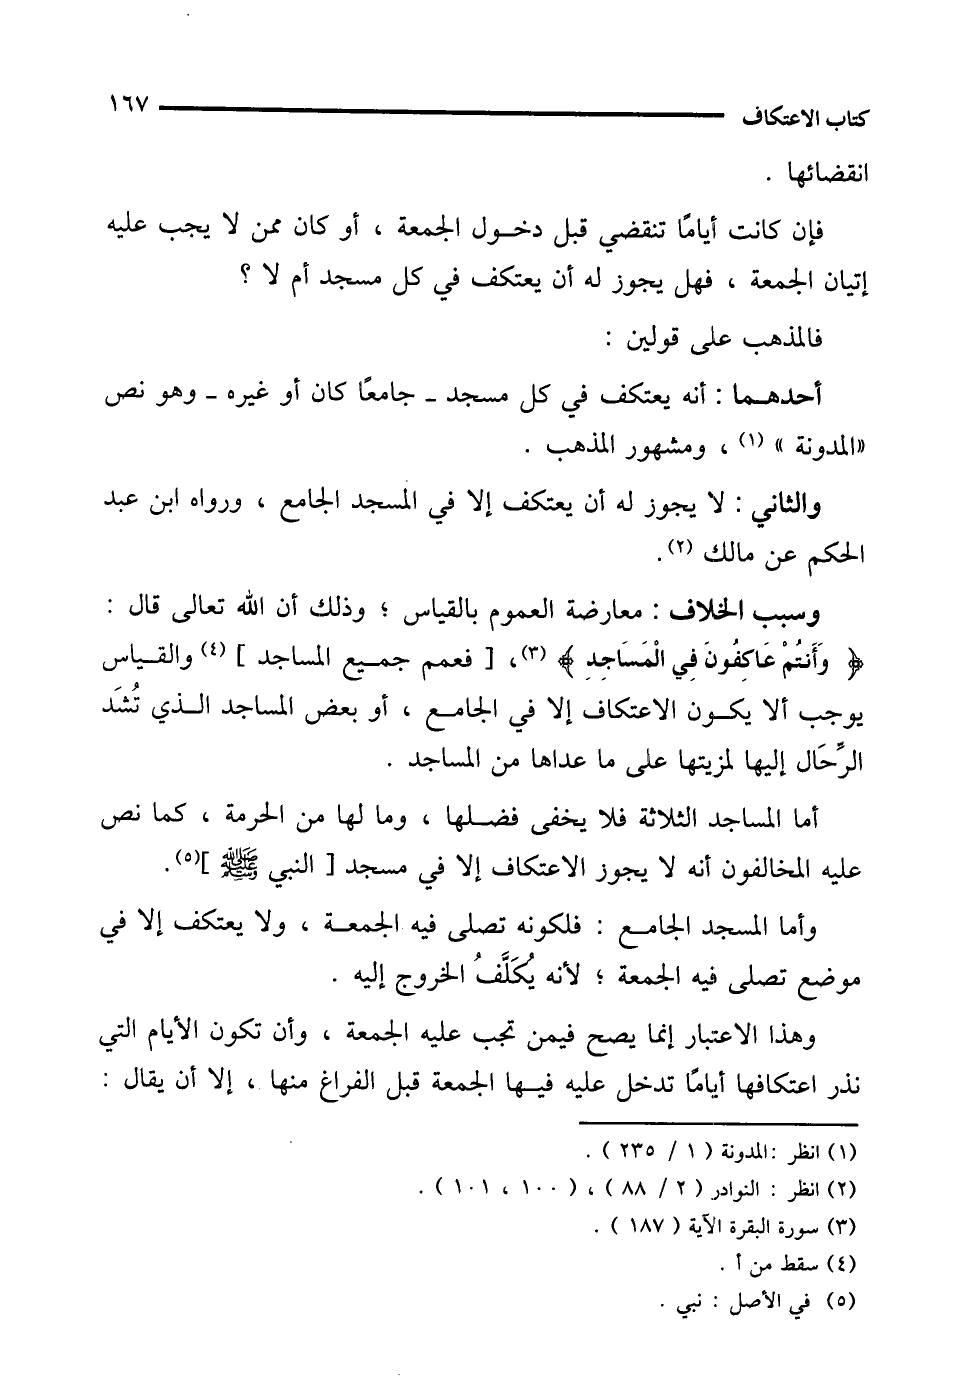 كتاب الاعتكاف ١٦٧
انقضائها .
فإن كانت أيامًا تنقضي قبل دخـول الجمعة ، أو كان ممن لا يجب عليه
إتيان الجمعة ، فهل يجوز له أن يعتكف في كل مسجد أم لا ؟
فالمذهب على قولين :
أحدهـما : أنه يعتكف في كل مسجد ـ جامعًا كان أو غيره ـ وهو نص
«المدونة » (١) ، ومشهور المذهب .
والثاني : لا يجوز له أن يعتكف إلا في المسجد الجامع ، ورواه ابن عبد
الحكم عن مالك (٢).
وسبب الخلاف : معارضة العموم بالقياس ؛ وذلك أن الله تعالى قال :
﴿ وَأَنتُمْ عَاكِفُونَ فِي الْمَسَاجِدِ ﴾ (٣)، [ فعمم جمـيع المساجد ] (٤) والقـياس
يوجب ألا يكـون الاعتكاف إلا في الجامـع ، أو بعض المساجد الـذي تُشَد
الرِّحَال إليها لمزيتها على ما عداها من المساجد .
أما المساجد الثلاثة فلا يخفى فضـلها ، وما لها من الحرمة ، كما نص
عليه المخالفون أنه لا يجوز الاعتكاف إلا في مسجد [ النبي ﷺ ](٥).
وأما المسجد الجامـع : فلكونه تصلى فيه الجمعـة ، ولا يعتكف إلا في
موضع تصلى فيه الجمعة ؛ لأنه يُكَلَّفُ الخروج إليه .
وهذا الاعتبار إنما يصح فيمن تجب عليه الجمعة ، وأن تكون الأيام التي
نذر اعتكافها أيامًا تدخل عليه فيـها الجمعة قبل الفراغ منها ، إلا أن يقال :
(١) انظر :المدونة ( ١ / ٢٣٥ ) .
(٢) انظر : النوادر ( ٢ / ٨٨ ) ، ( ١٠٠ ، ١٠١ ) .
(٣) سورة البقرة الآية ( ١٨٧ ) .
(٤) سقط من أ .
(٥) في الأصل : نبي .